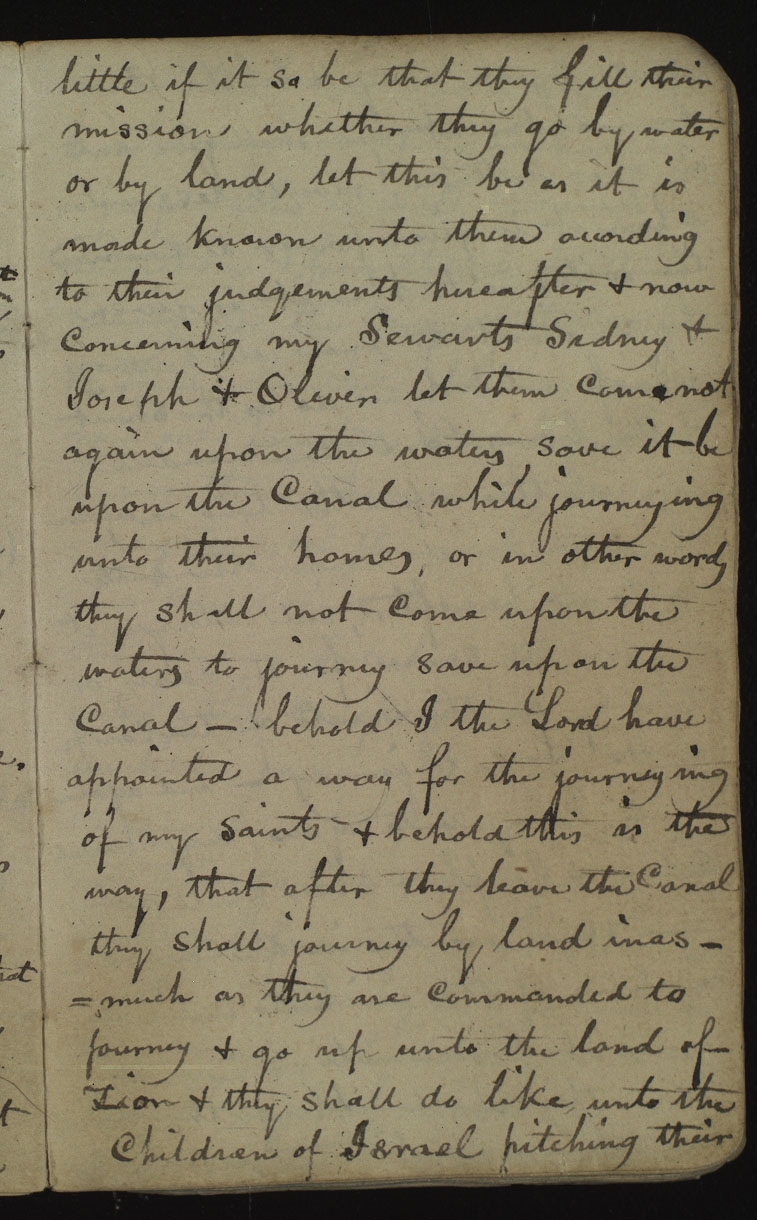 little if it so be that they fill their
mission whether they go by water
or by land, let this be as it is
made known unto them acording
to their judgements hereafter & now
concerning my Servants Sidney &
Joseph & Oliver let them come not
again upon the waters save it be
upon the Canal while journeying
unto their homes, or in other words
they shall not come upon the
waters to journey save upon the
Canal — behold I the Lord have
appointed a way for the journeying
of my Saints & behold this is the
way, that after they leave the Canal
they shall journey by land inas-
=much as they are commanded to
journey & go up unto the land of
Zion & they shall do like unto the
Children of Israel pitching their